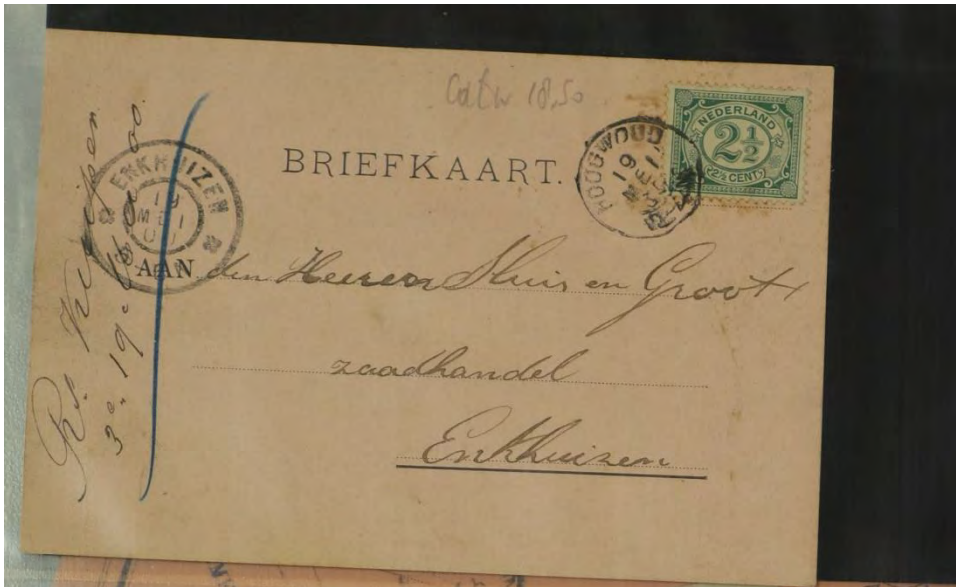 Catw 18,50
NEDERLAND
2½
(2½ CENT)
HOOGWOUD
19
MEI
BRIEFKAART.
ENKHUIZEN
19
MEI
AAN den Heeren Sluis en Groot
zaadhandel
Enkhuizen
Rs.
3e. 19